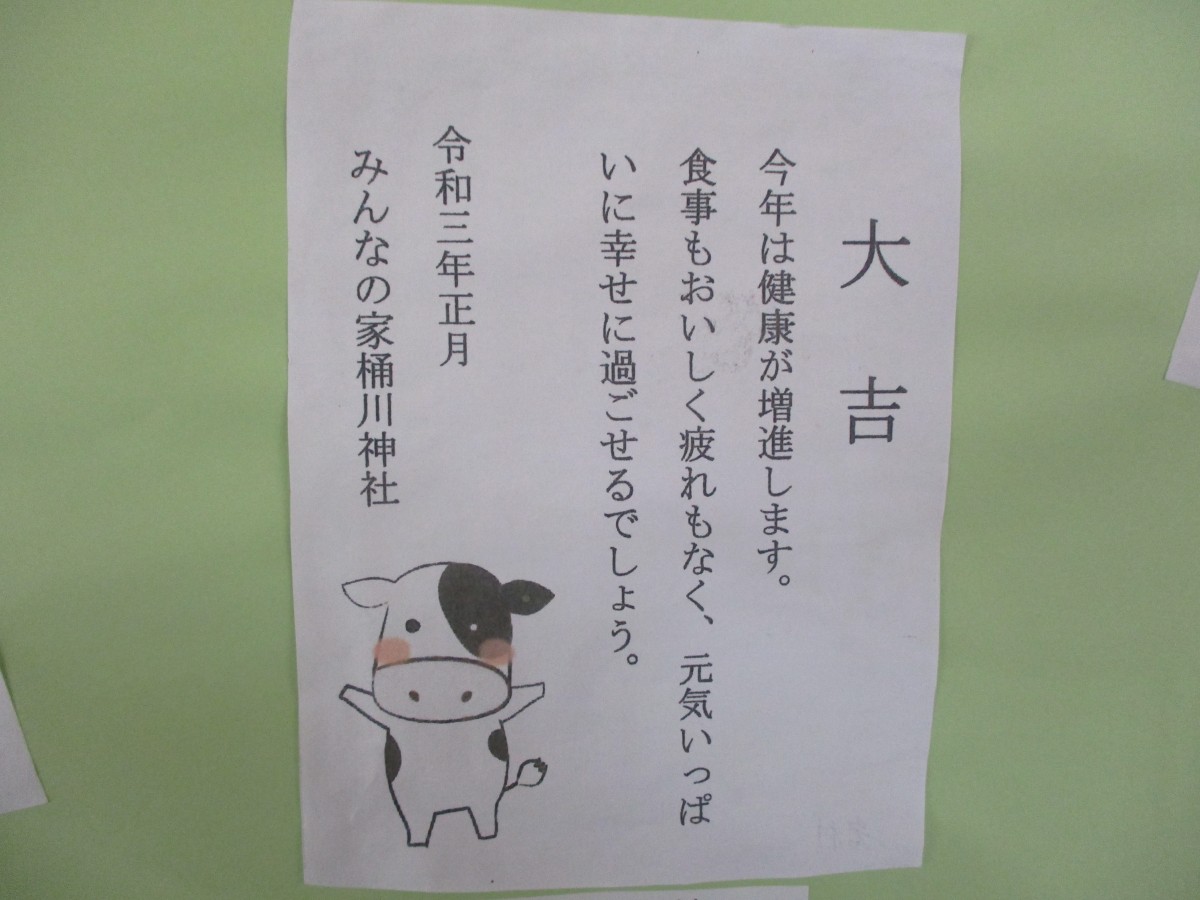 大吉
今年は健康が増進します。
食事もおいしく疲れもなく、元気いっぱ
いに幸せに過ごせるでしょう。
令和三年正月
みんなの家桶川神社